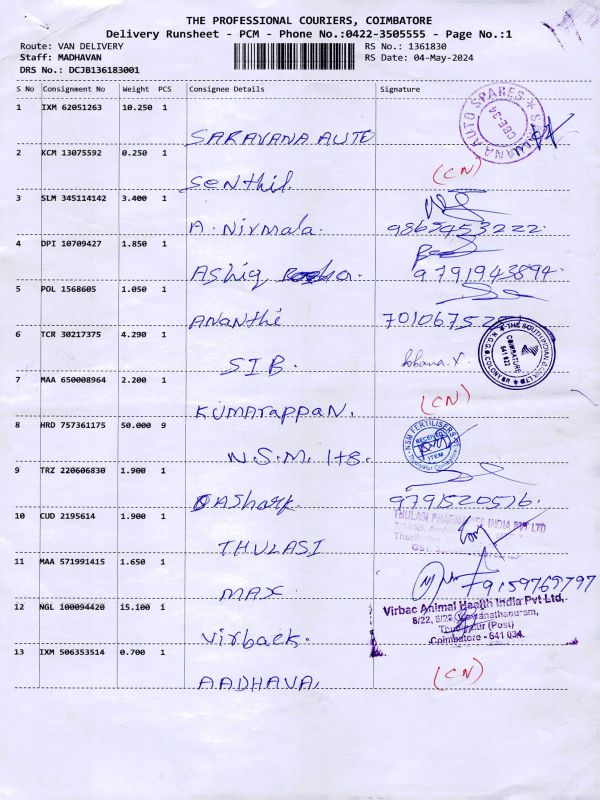 THE PROFESSIONAL COURIERS, COIMBATORE
Delivery Runsheet - PCM - Phone No.:0422-3505555 - Page No.:1
Route: VAN DELIVERY
RS No.: 1361830
Staff: MADHAVAN
RS Date: 04-May-2024
DRS No.: DCJB136183001
S No Consignment No Weight PCS Consignee Details Signature
1 IXM 62051263 10.250 1
SARAVANA AUTO SPARES
CBE-34
SARAVANA AUTO
2 KCM 13075592 0.250 1
Senthil. (CN)
3 SLM 345114142 3.400 1
A. Nirmala. 9865453222.
4 DPI 10709427 1.850 1
Ashiq 9791943894.
5 POL 1568605 1.050 1
Ananthi 70106752
6 TCR 30217375 4.290 1
THE SOUTH INDIAN BANK LTD
COIMBATORE
641 022
SIB.
7 MAA 650008964 2.200 1
Kumarappan. (CN)
8 HRD 757361175 50.000 9
NSM FERTILISERS
RECEIVED
ITEM
N.S.M. 1+8.
9 TRZ 220606830 1.900 1
Ashark. 9791520516.
10 CUD 2195614 1.900 1
THULASI PHARMACIES INDIA PVT LTD
THULASI
11 MAA 571991415 1.650 1
MAX. 9159769797
12 NGL 100094420 15.100 1
Virbac Animal Health India Pvt Ltd,
8/22,
(Post)
Coimbatore - 641 034.
Virback.
13 IXM 506353514 0.700 1
AADHAVA. (CN)